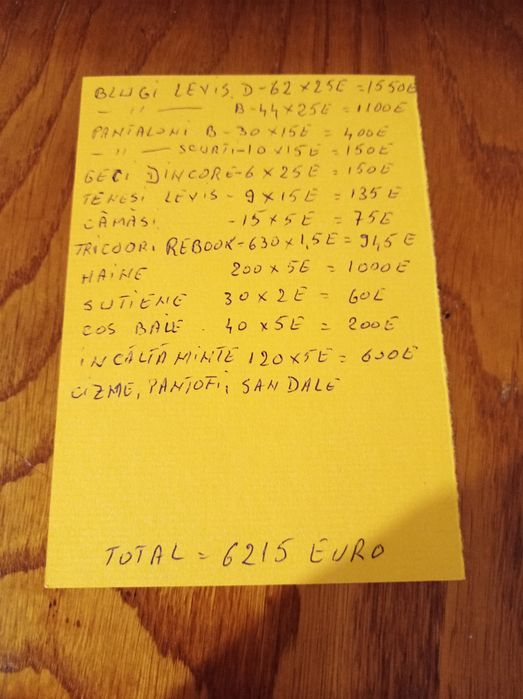 BLUGI LEVIS. D-62 x 25E = 1550E
— " — B-44 x 25E = 1100E
PANTALONI B-30 x 15E = 400E
— " — SCURTI-10 x 15E = 150E
GECI DINCORE-6 x 25E = 150E
TENESI LEVIS - 9 x 15E = 135E
CĂMĂSI -15 x 5E = 75E
TRICOURI REBOOK-630 x 1,5E = 945E
HAINE 200 x 5E = 1000E
SUTIENE 30 x 2E = 60E
COS BAIE . 40 x 5E = 200E
INCĂLTĂMINTE 120 x 5E = 600E
CIZME, PANTOFI, SANDALE
TOTAL = 6215 EURO